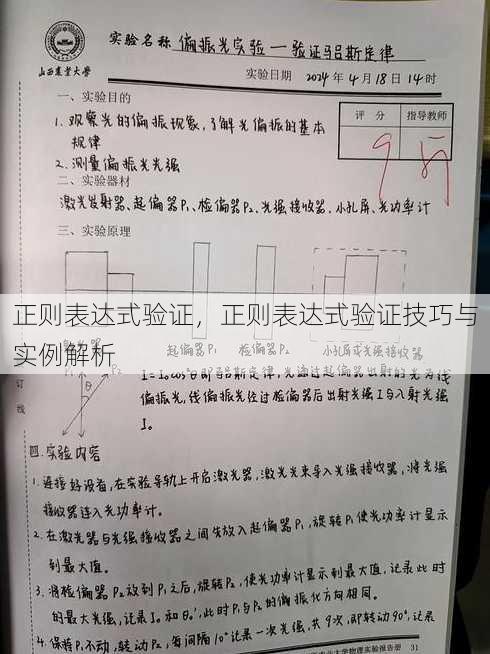 实验名称 偏振光实验一验证马吕斯定律
山西农业大学
实验日期 2024 年 4 月 18 日 14 时
一、实验目的
评 分 指导教师
1. 观察光的偏振现象,了解光偏振的基本
规律
9
2. 测量偏振光光强
二、实验器材
激光发射器、起偏器P₁、检偏器P₂、光强接收器、小孔屏、光功率计
三、实验原理
正则表达式验证，正则表达式验证技巧与
实例解析
起偏器P₁ 检偏器P₂ 小孔屏或光强接收器
P₁ θ P₂
I=I₀cos²θ即马吕斯定律,光通过起偏器出射的光为线
订
偏振光,线偏振光经过检偏器后出射光强I与入射光强
线
I₀
四. 实验内容
1. 连接好设备,在实验导轨上开启激光器,激光光束导入光强接收器,将光强
接收器连入光功率计。
2. 在激光器与光强接收器之间先放入起偏器P₁,旋转P₁使光功率计显示
到最大值。
3. 将检偏器P₂放到P₁之后,旋转P₂,使光功率计显示到最大值,记录此时
的最大光强,记录I₀和θ₀',此时P₁与P₂的偏振化方向相同。
4. 保持P₁不动,转动P₂,每间隔10°记录一次光强,共9次,即转动90°,记录
农业大学物理实验报告册 31